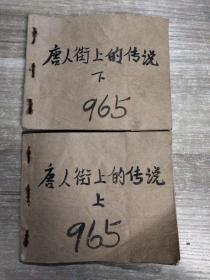 唐人街上的传说
下
965
唐人街上的传说
上
965